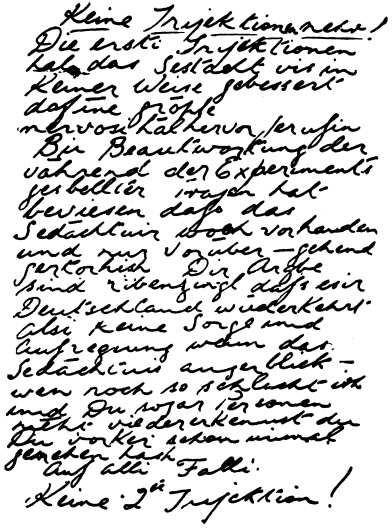 Keine Injektionen mehr!
Die erste Injektionen
hat das Gedächtnis in
Keiner Weise gebessert
dafine größe
nervosität hervorgerufen
Bir Beautwortung der
während der Experiments
gestellter Fragen hat
bewiesen dass das
Gedächtnis noch vorhanden
und nur vorüber – gehend
gestört ist Die Ärzte
sind überzeugt dass es in
Deutschland wiederkehrt
Also keine Sorge und
Aufregung wenn das
Gedächtnis augenblick –
noch so schlecht ist
und Du sogar Personen
nicht wiedererkennst die
Du vorher schon einmal
gesehen hast
Auf alle Falle.
Keine 2te Injektion!